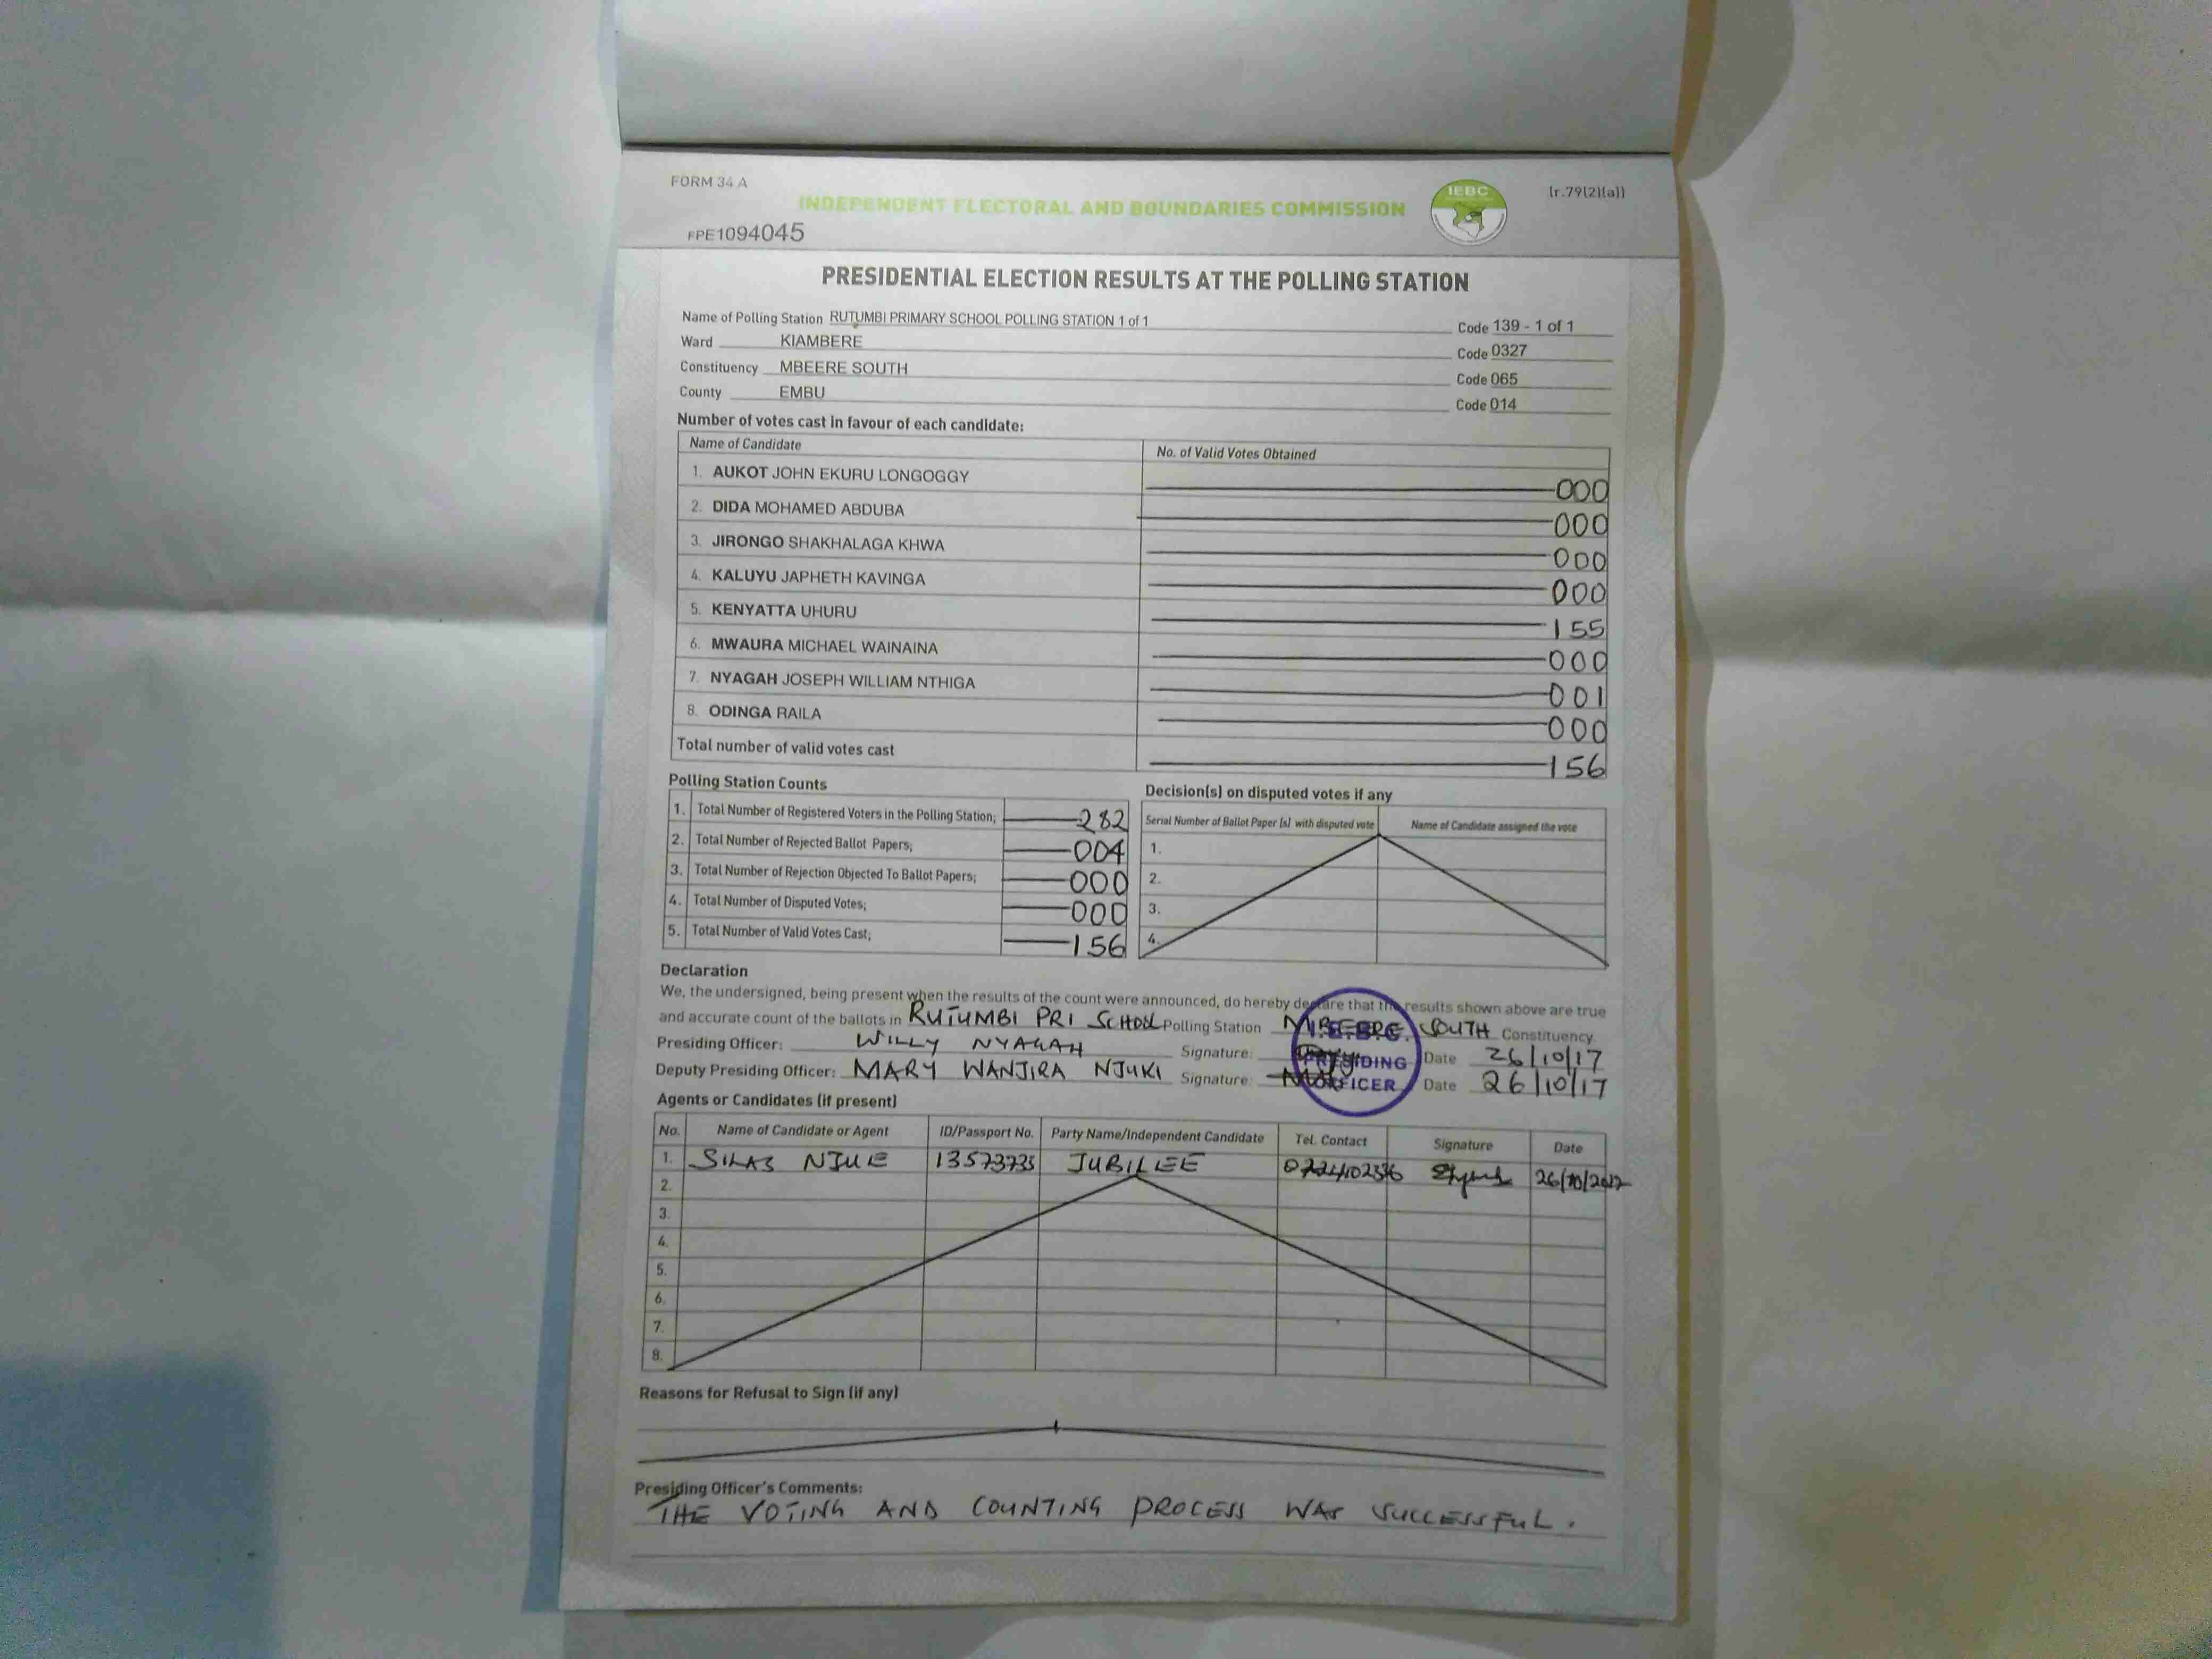 FORM 34 A
INDEPENDENT ELECTORAL AND BOUNDARIES COMMISSION
IEBC
(r.79(2)(a))
FPE1094045
PRESIDENTIAL ELECTION RESULTS AT THE POLLING STATION
Name of Polling Station RUTUMBI PRIMARY SCHOOL POLLING STATION 1 of 1 Code 139 - 1 of 1
Ward KIAMBERE Code 0327
Constituency MBEERE SOUTH Code 065
County EMBU Code 014
Number of votes cast in favour of each candidate:
Name of Candidate No. of Valid Votes Obtained
1. AUKOT JOHN EKURU LONGOGGY 000
2. DIDA MOHAMED ABDUBA 000
3. JIRONGO SHAKHALAGA KHWA 000
4. KALUYU JAPHETH KAVINGA 000
5. KENYATTA UHURU 155
6. MWAURA MICHAEL WAINAINA 000
7. NYAGAH JOSEPH WILLIAM NTHIGA 001
8. ODINGA RAILA 000
Total number of valid votes cast 156
Polling Station Counts
1. Total Number of Registered Voters in the Polling Station; 282
2. Total Number of Rejected Ballot Papers; 004
3. Total Number of Rejection Objected To Ballot Papers; 000
4. Total Number of Disputed Votes; 000
5. Total Number of Valid Votes Cast; 156
Decision(s) on disputed votes if any
Serial Number of Ballot Paper (s) with disputed vote Name of Candidate assigned the vote
1.
2.
3.
4.
Declaration
We, the undersigned, being present when the results of the count were announced, do hereby declare that the results shown above are true
and accurate count of the ballots in RUTUMBI PRI SCHOOL Polling Station MBEERE SOUTH Constituency
Presiding Officer: WILLY NYAGAH Signature: Date 26/10/17
Deputy Presiding Officer: MARY WANJIRA NJUKI Signature: Date 26/10/17
I.E.B.C.
PRESIDING
OFFICER
Agents or Candidates (if present)
No. Name of Candidate or Agent ID/Passport No. Party Name/Independent Candidate Tel. Contact Signature Date
1. SILAS NJUE 13573735 JUBILEE 26/10/2017
2.
3.
4.
5.
6.
7.
8.
Reasons for Refusal to Sign (if any)
Presiding Officer's Comments:
THE VOTING AND COUNTING PROCESS WAS SUCCESSFUL.